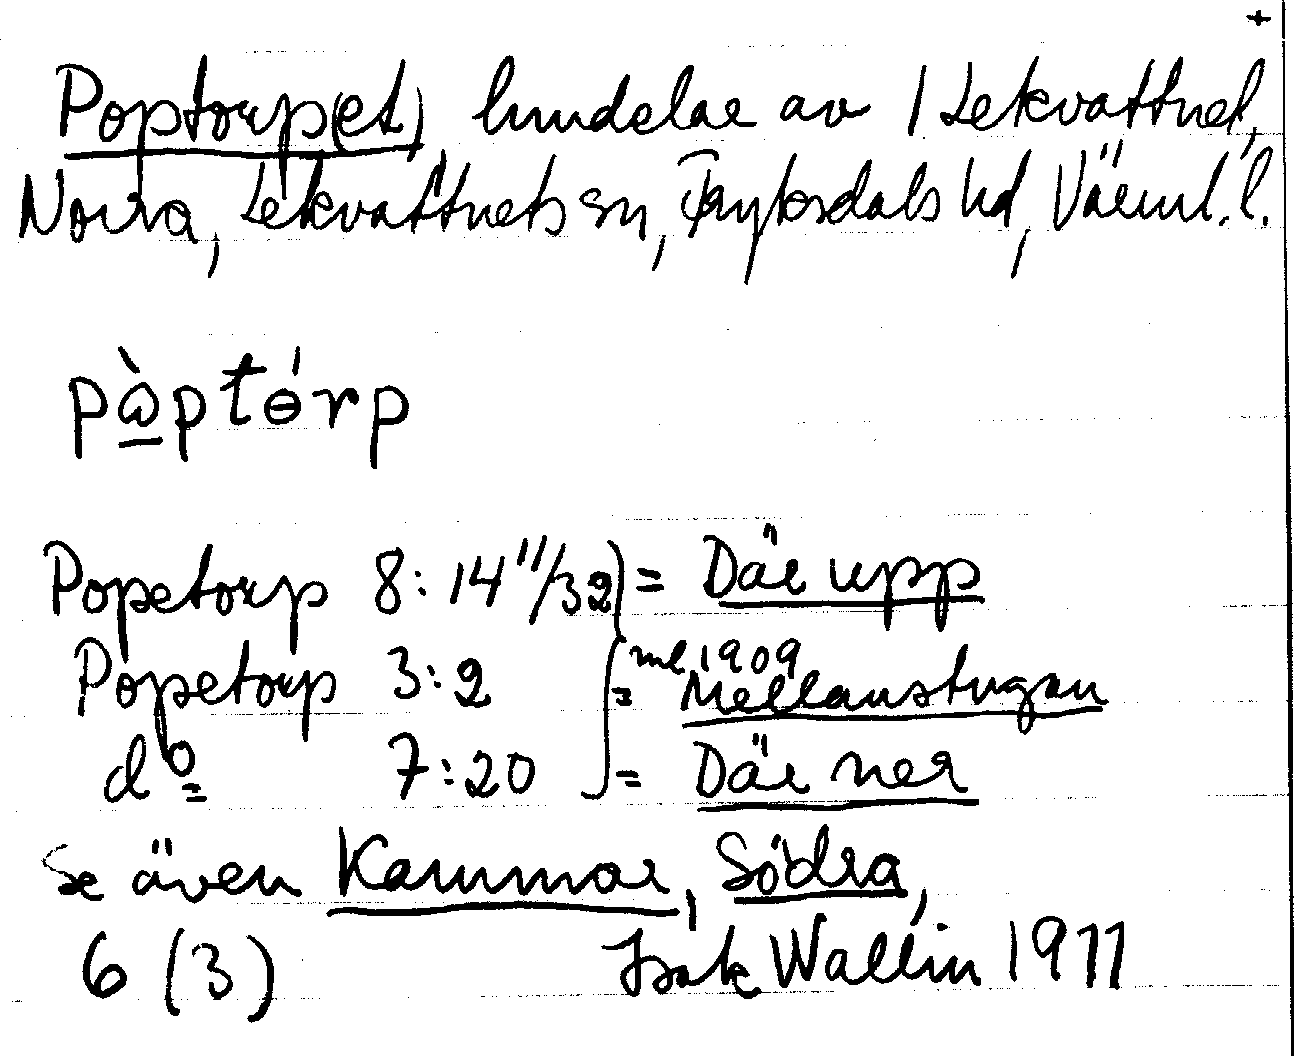 +
Poptorp(et), hmdelar av 1 Lekvattnet,
Norra, Lekvattnets sn, Fryksdals hd, Värml. l.
pὼ̲ptɵ́rp
Popetorp 8:14 11/32) = Där upp
Popetorp 3:2 ml 1909 = Mellanstugan
do 7:20 = Där ner
Se även Kammar, Södra,
6 (3) Isak Wallin 1977